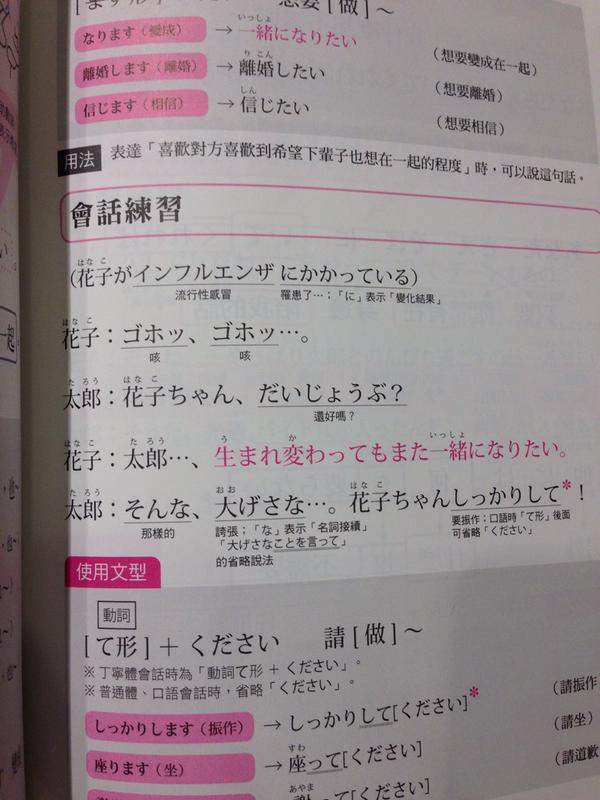 [ます形] 想要 [做] ～
なります (變成) → 一緒になりたい (想要變成在一起)
離婚します (離婚) → 離婚したい (想要離婚)
信じます (相信) → 信じたい (想要相信)
用法 表達「喜歡對方喜歡到希望下輩子也想在一起的程度」時，可以說這句話。
會話練習
(花子がインフルエンザ にかかっている)
流行性感冒 罹患了…；「に」表示「變化結果」
花子：ゴホッ、ゴホッ…。
咳 咳
太郎：花子ちゃん、だいじょうぶ？
還好嗎？
花子：太郎…、生まれ変わってもまた一緒になりたい。
太郎：そんな、大げさな…。花子ちゃんしっかりして*！
那樣的 誇張；「な」表示「名詞接續」 要振作；口語時「て形」後面
「大げさなことを言って」 可省略「ください」
的省略說法
使用文型
動詞
[て形] + ください 請 [做] ～
※ 丁寧體會話時為「動詞て形 + ください」。
※ 普通體、口語會話時，省略「ください」。
しっかりします (振作) → しっかりして[ください]* (請振作
座ります (坐) → 座って[ください] (請坐)
[ください] (請道歉